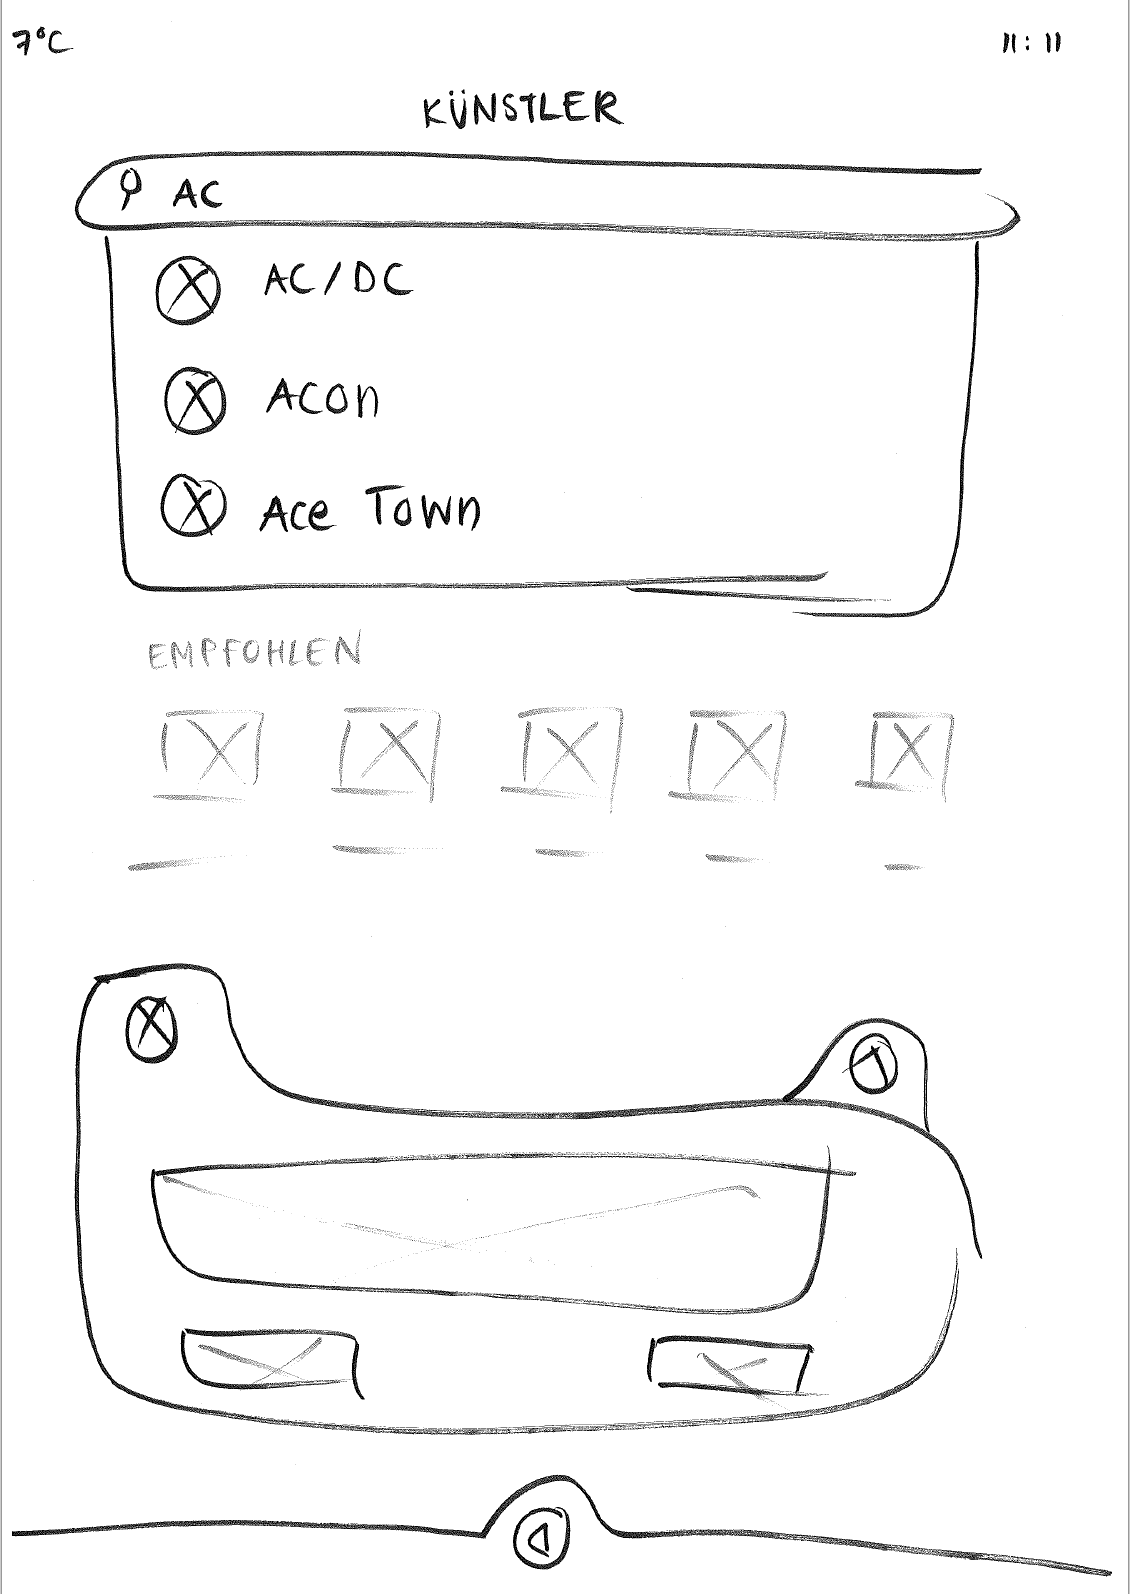 7°C
11:11
KÜNSTLER
AC
AC/DC
Acon
Ace Town
EMPFOHLEN